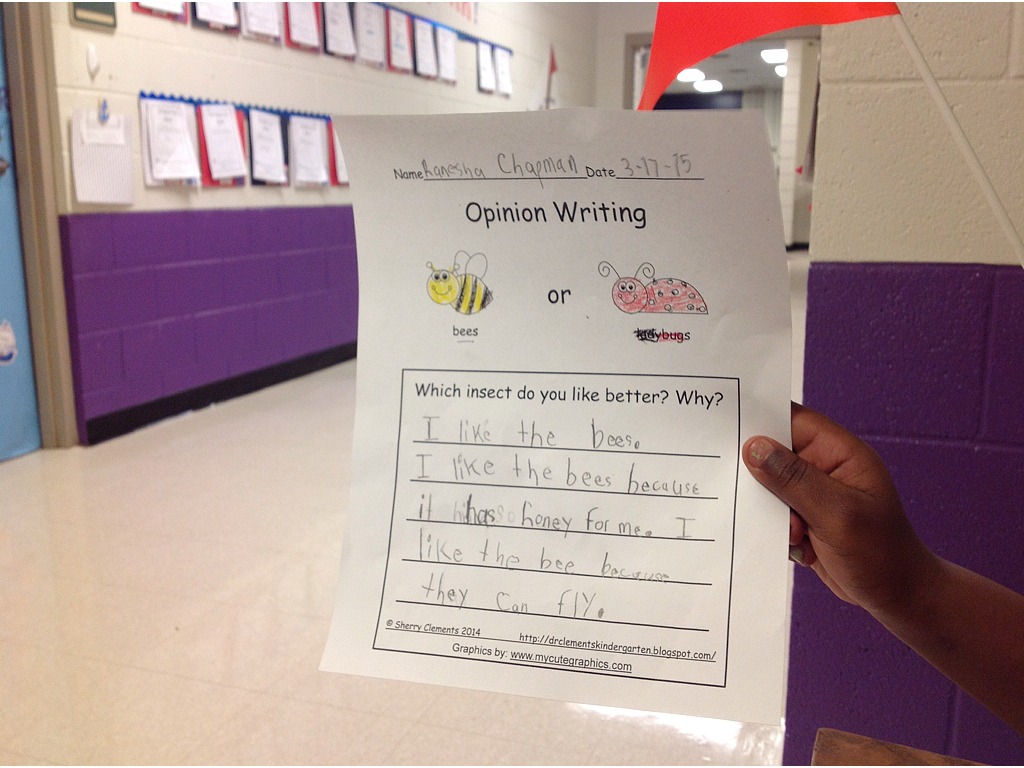 Name Ranesha Chapman Date 3-17-15
Opinion Writing
or
bees
bugs
Which insect do you like better? Why?
I like the bees.
I like the bees because
it has honey for me. I
like the bee because
they can fly.
© Sherry Clements 2014 http://drclementskindergarten.blogspot.com/
Graphics by: www.mycutegraphics.com